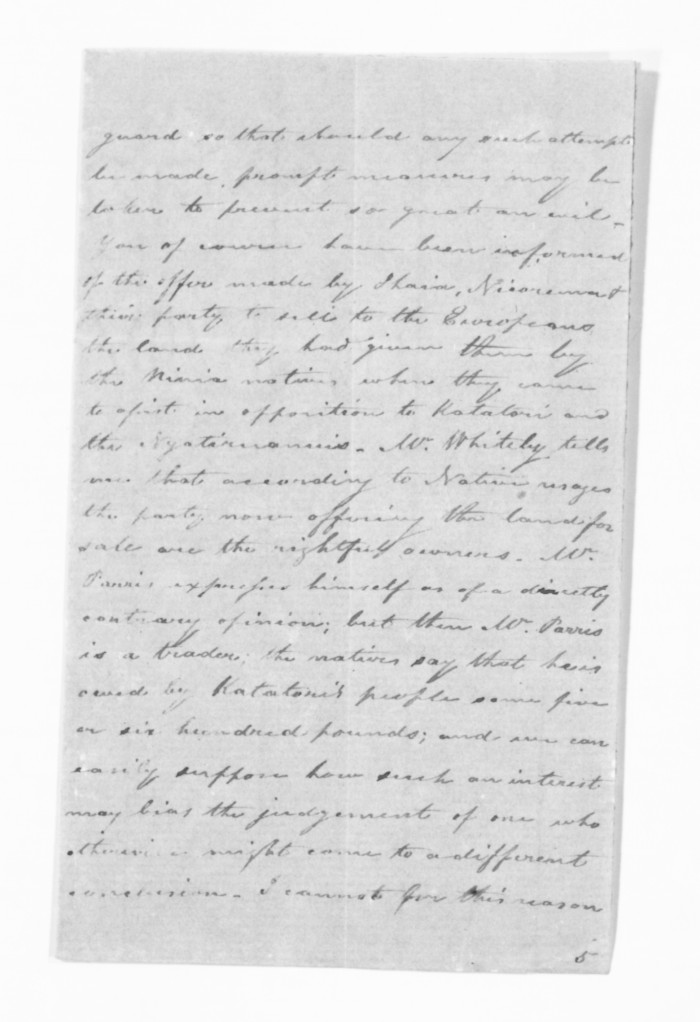 guard so that should any such attempts
be made, prompt measures may be
taken to prevent so great an evil -
You of course have been informed
of the offer made by Ihaia, Nicorima &
their party, to sell to the Europeans
the land they had given them by
the Ninia natives when they came
to assist in opposition to Katatori and
the - Mr. Whiteley tells
me that according to Native usages
the party now offering the land for
sale are the rightful owners. Mr.
Parris expresses himself as of a directly
contrary opinion; but then Mr. Parris
is a trader; the natives say that he is
owed by Katatori's people some five
or six hundred pounds; and we can
easily suppose how such an interest
may bias the judgement of one who
otherwise might come to a different
conclusion - I cannot for this reason
5